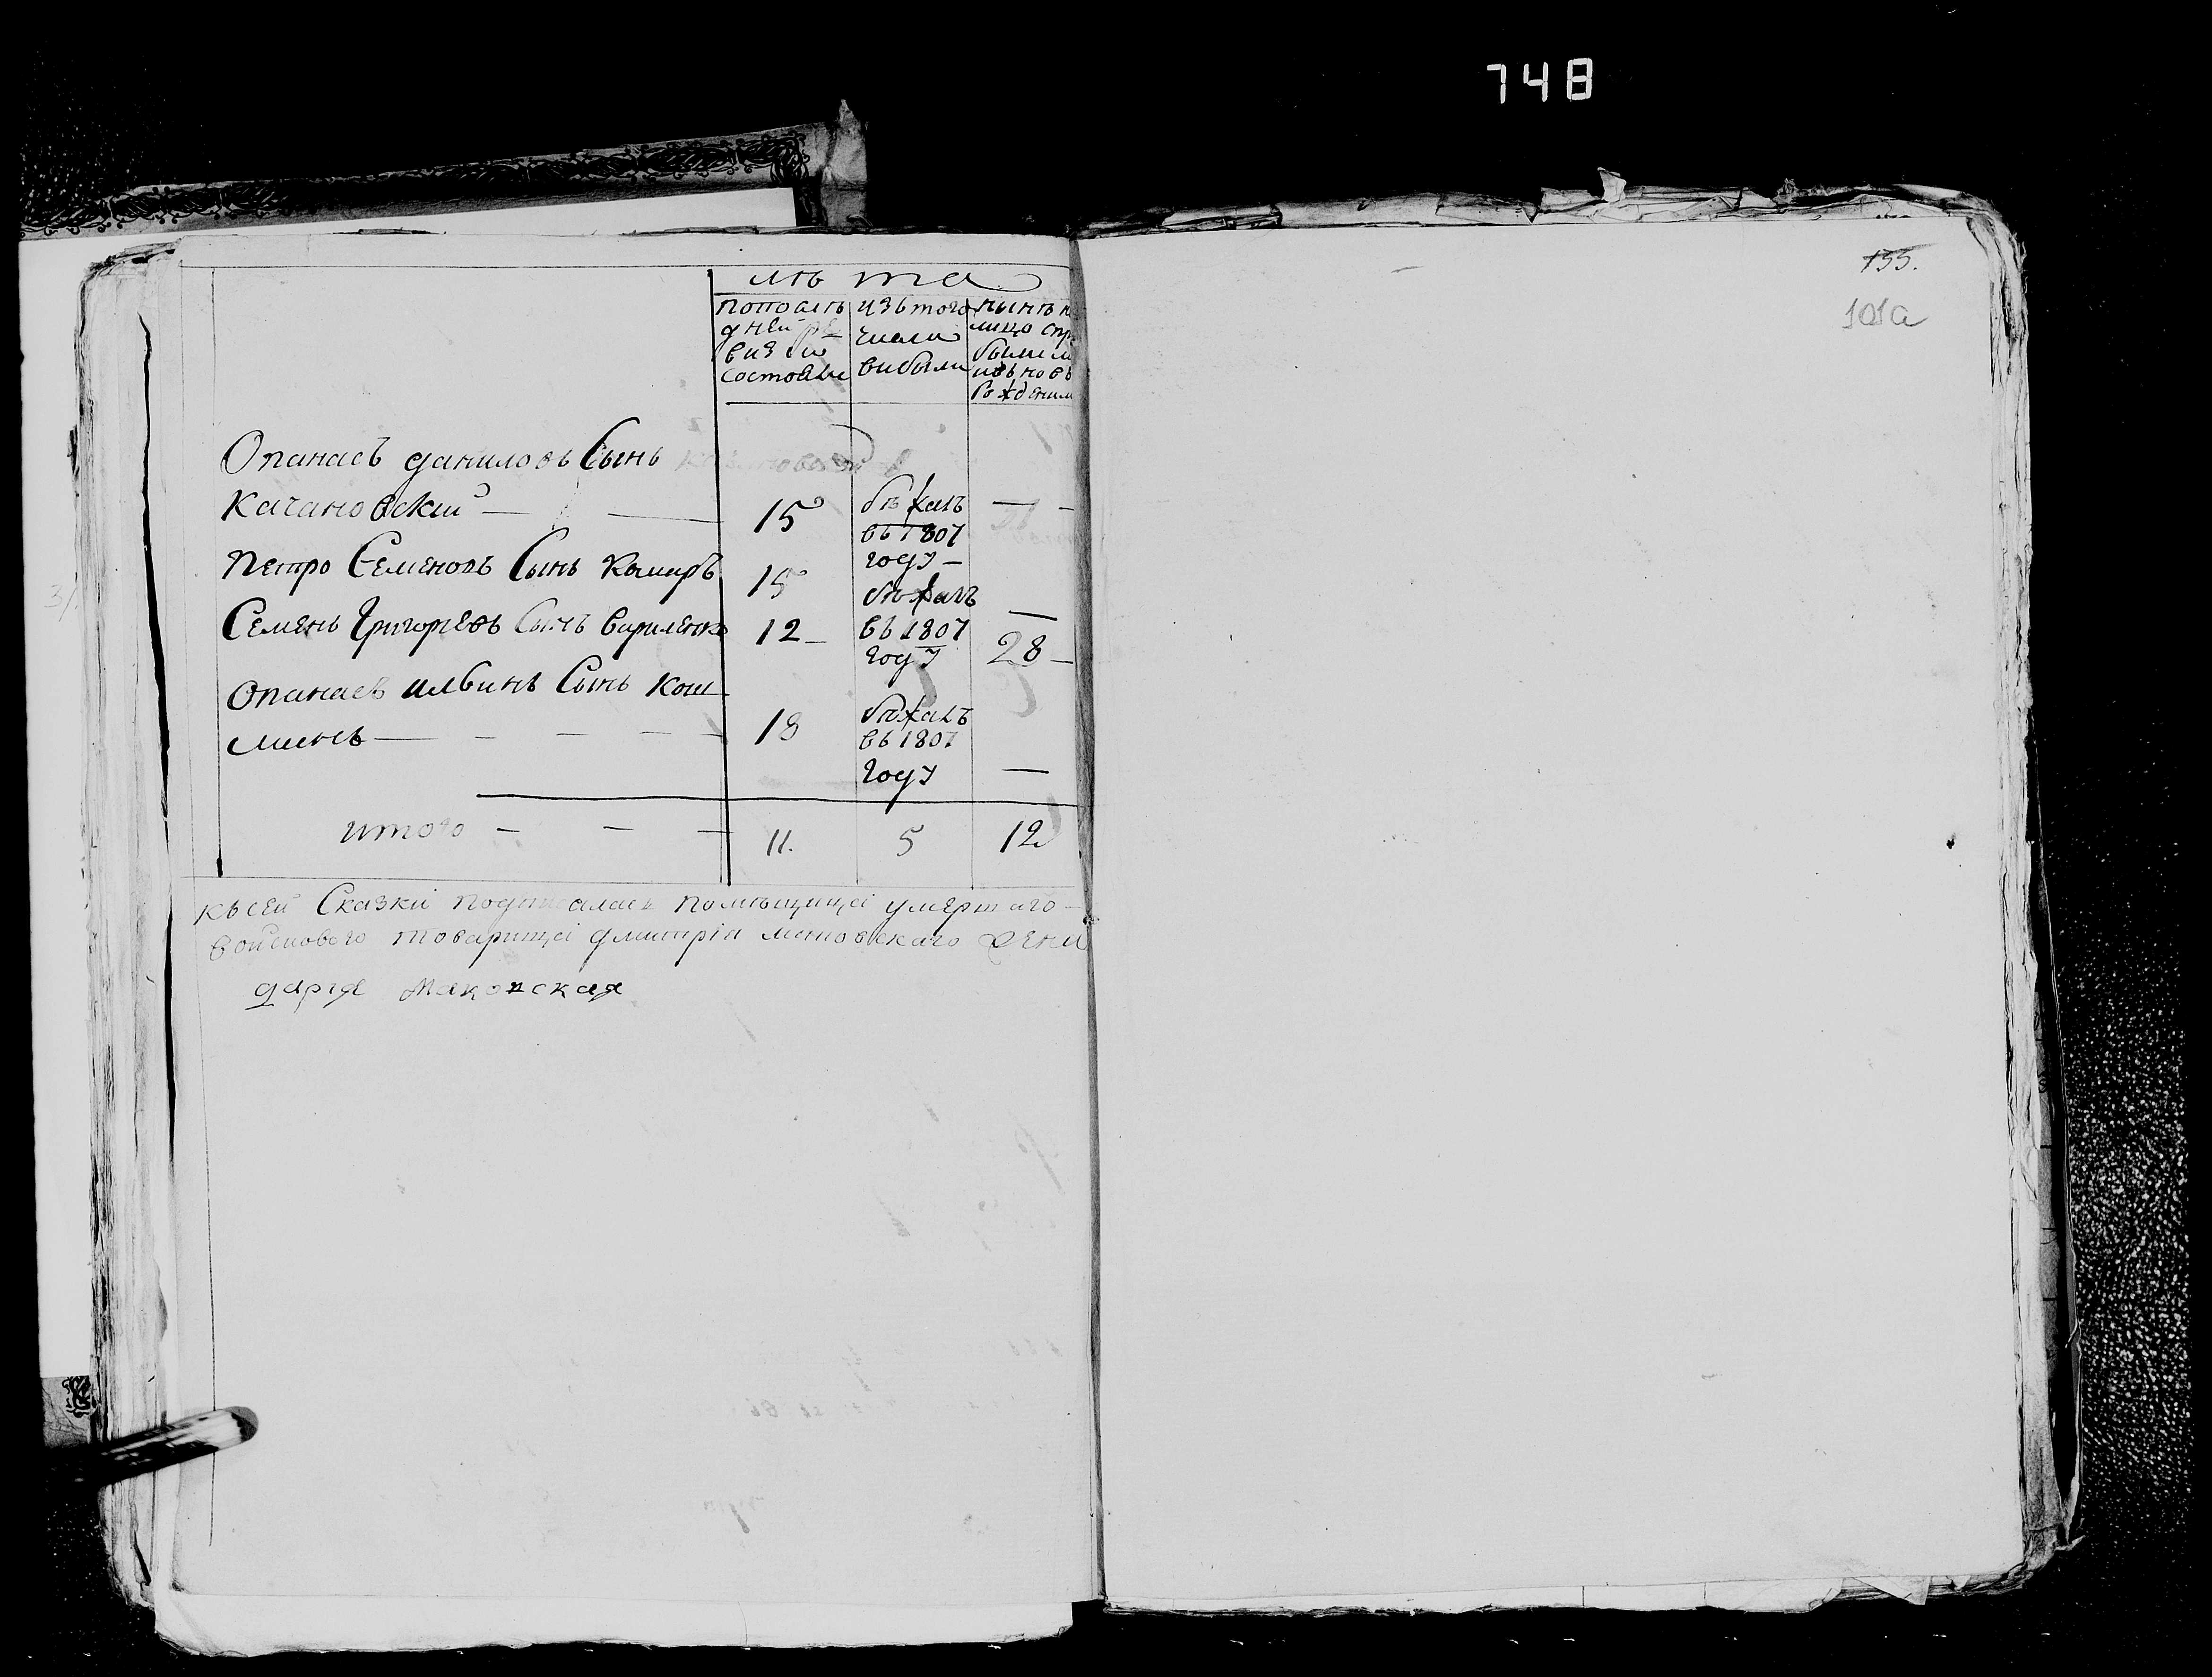 748
лѣта
попослѣ дней ре визіи состояли
изъ того числа вибыли
нынѣ на лицо спри былими изъ новь рожденими
Опанасъ даниловъ Сынъ
Качановскій — — 15 бѣжалъ въ 1807 году — —
Петро Семеновъ Сынъ Комаръ 15 бѣжалъ въ 1807 году —
Семенъ Григорьевъ Сынъ Вариленко 12 — 28 —
Опанасъ Сынъ Кош
минъ — — — — — 18 бѣжалъ въ 1807 году —
итого — — — 11. 5 12
Къ сей Сказки подписалась помѣщица умершаго
войскового товарища дмитрія маковскаго жена
дарія Маковская
155.
101а